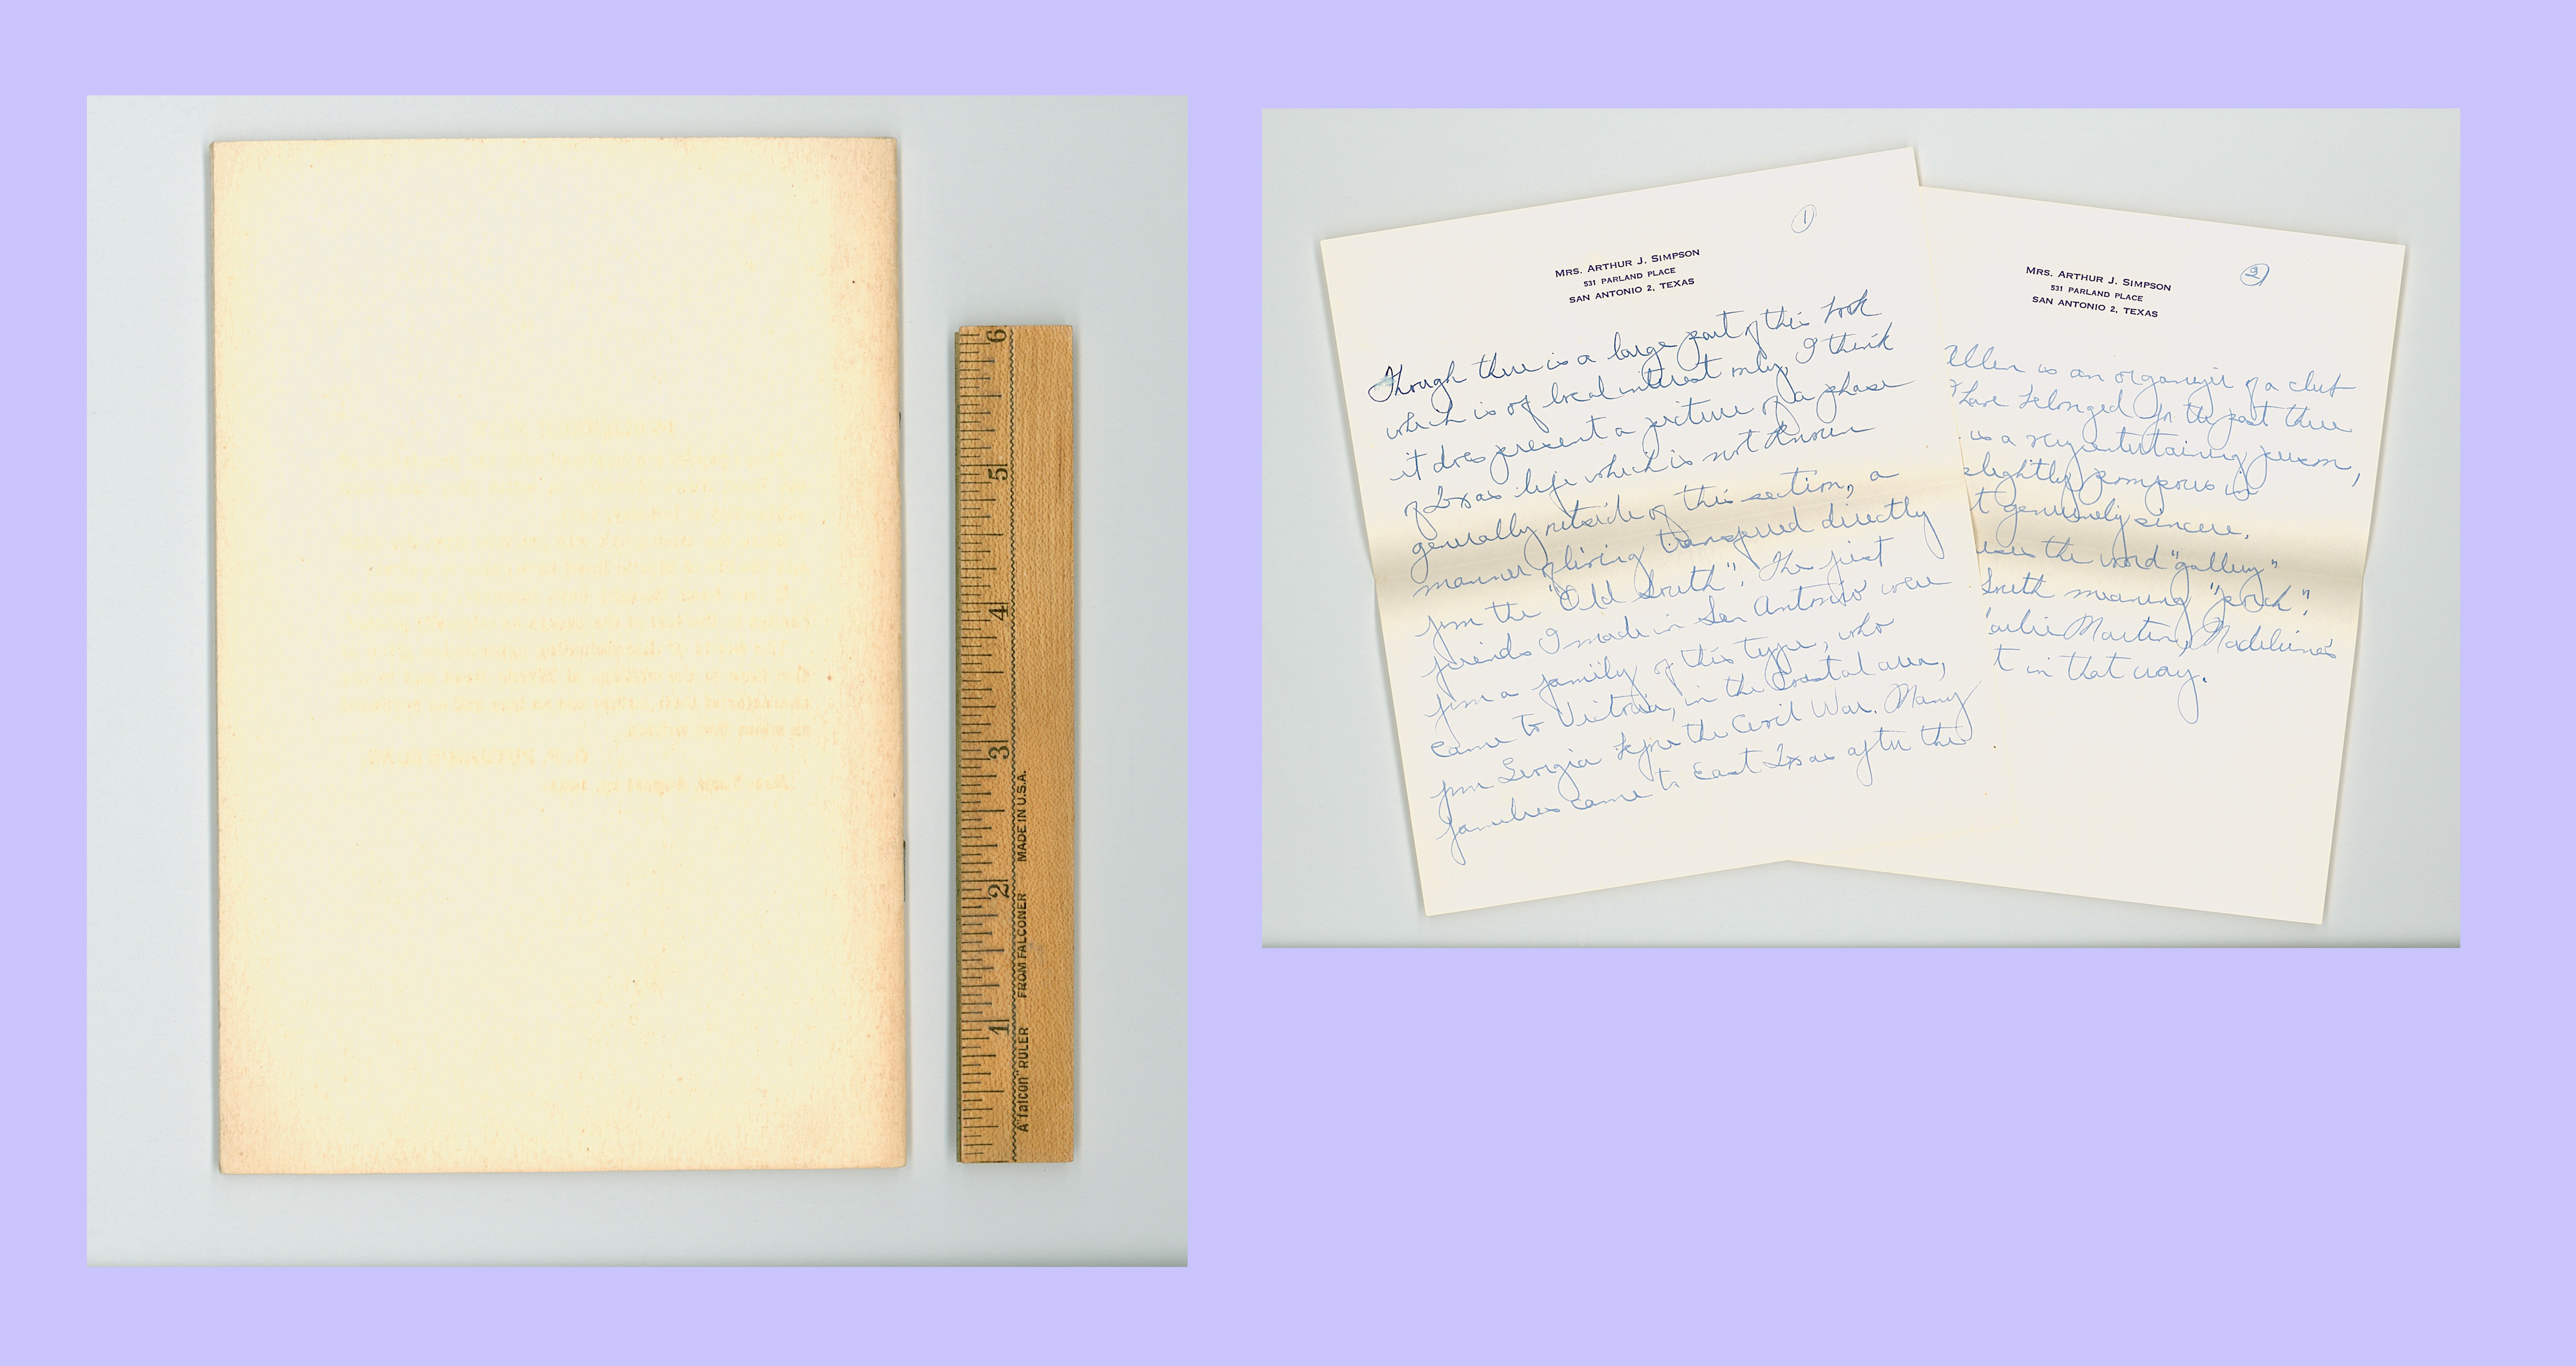 6
5
4
3
2
1
A "falcon" RULER FROM FALCONER MADE IN U.S.A.
①
MRS. ARTHUR J. SIMPSON
531 PARLAND PLACE
SAN ANTONIO 2, TEXAS
Though there is a large part of this book
which is of local interest only, I think
it does present a picture of a phase
of Texas life which is not known
generally outside of this section, a
manner of living transferred directly
from the "Old South". The first
friends I made in San Antonio were
from a family of this type, who
came to Victoria, in the coastal area,
from Georgia before the Civil War. Many
families came to East Texas after the
②
MRS. ARTHUR J. SIMPSON
531 PARLAND PLACE
SAN ANTONIO 2, TEXAS
Ellen is an organizer of a club
I have belonged for the past three
is a very entertaining person,
slightly pompous in
t genuinely sincere.
uses the word "gallery"
South meaning "porch".
Martin, Madeleine's
t in that way.